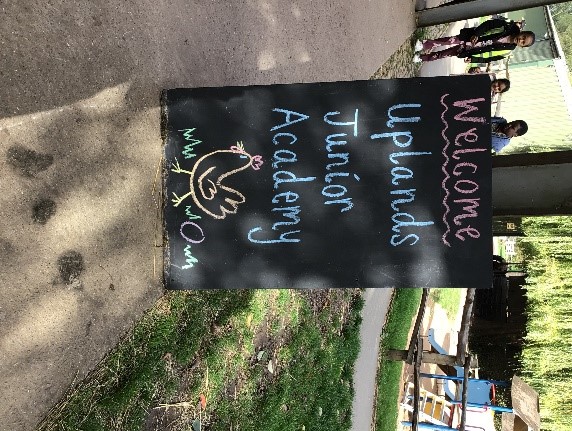 Welcome
Uplands
Junior
Academy